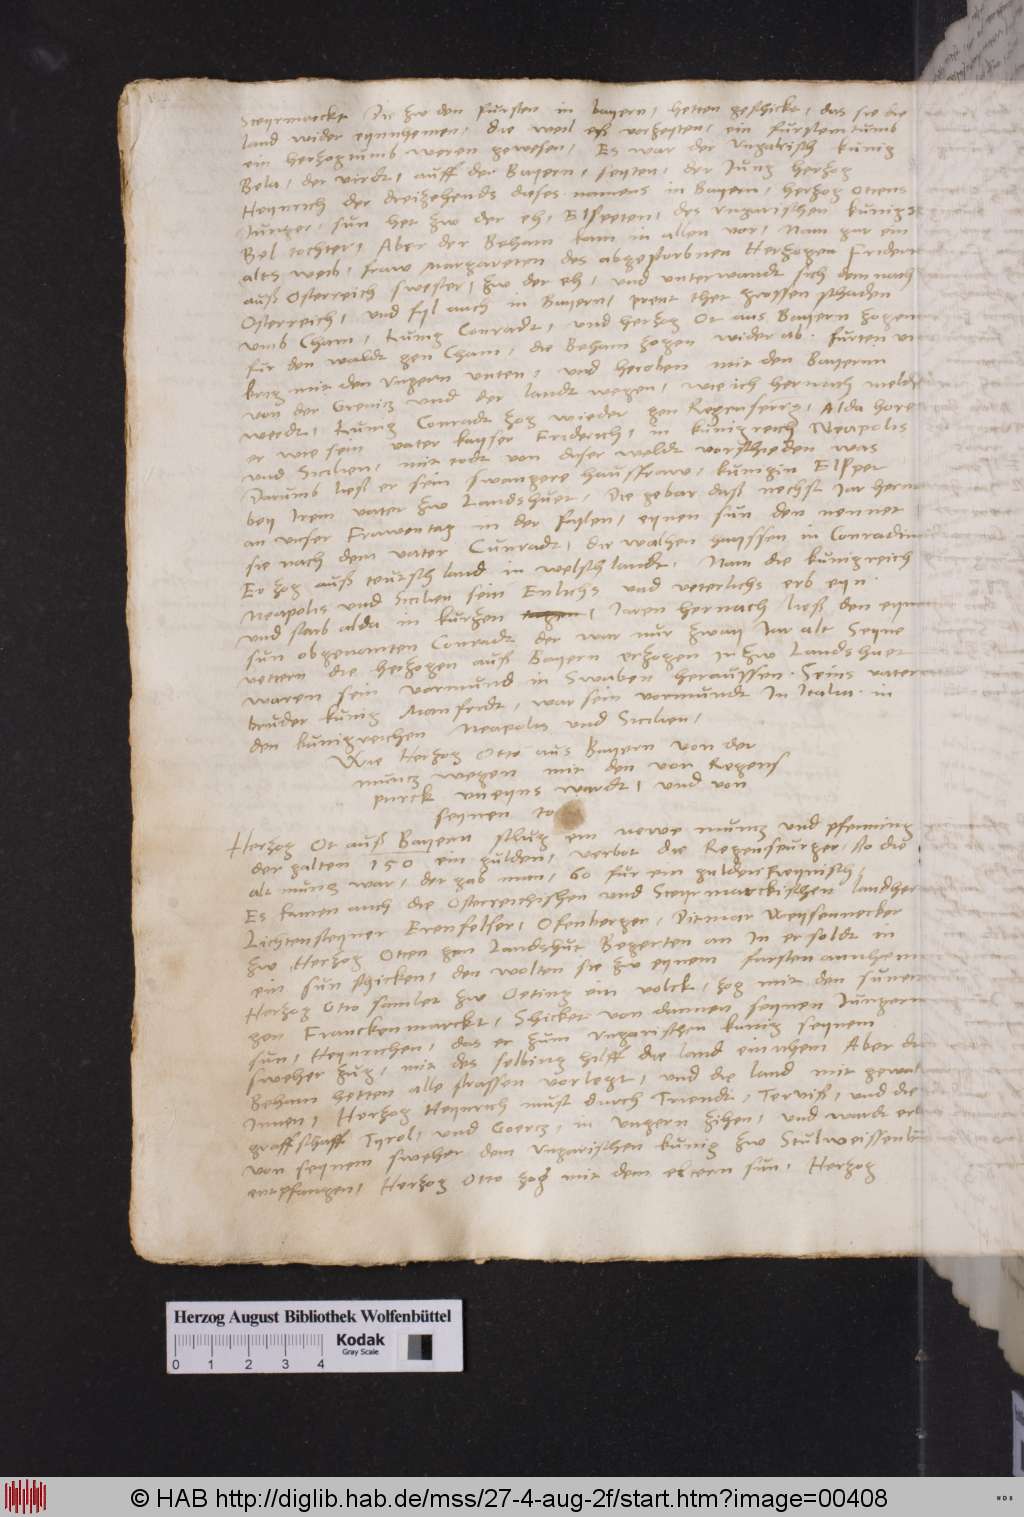 Steyrmarckt Die zw den fursten in bayern, hetten geschickt, das sie die
land wider eynnhemen, die weil eß vorzeyten, ein furstentumb
ein hertzogtumb weren gewesen, Es war der Vngarisch kunig
Bela, der virdt, auff der Bayern, seyten, der Jung hertzog
Heynrich der dreizehends dieses namens in Bayern, hertzog Ottens
Junger, sun het zw der eh, Elspeten, des vngarischen kunigs
Bel tochter, Aber der Beham kam in allen vor, Nam gar ein
alts weib, fraw Margareten des abgestorbnen Hertzogen Frider
auß Osterreich swester, zw der eh, und unterwandt sich dem nach
Osterreich, und fyl auch in Bayern, prent thet grossen schaden
vmb Cham, kunig Conradt, und hertzog Ot aus Bayern zogen
fur den waldt gen Cham, die Beham zogen wider ab. furten
krig mit den vngern unten, und heroben mit den Bayernn
von der Grenicz und der landt wegen, wie ich hernach meld
werdt, kunig Conradt zog wieder gen Regenspurg, Alda hore
er wie sein vater kayser Friderich, in kunigreich Neapolis
vnd Sicilien, mit todt von diser weldt vorschieden was
Darumb ließ er sein swangere haussfraw, kunigin Elspet
bey Irem vater zw Landshuet, Die gebar daß nechst Jar hern
an vnser Frawentag in der fasten, eynen sun den nennet
sie nach dem vater Cunradt, die walhen hayssen in Conradin
Er zog auß teutsch land in welsch landt, Nam die kunigreich
Neapolis vnd Sicilien sein Enlichs und veterlichs erb eyn.
vnd starb alda in kurtzen Jaren hernach ließ den eynn
sun obgenanten Conradt der war nur zway Jar alt Seyne
vettern die hertzogen auß Bayern erzogen In zw Landshuet
waren sein vormund in Swaben heraussen. Seins vater
bruder kunig Manfridt, war sein vormundt In Italia. in
den kunigreichen Neapolis vnd Sicilien,
Wie Hertzog Otto aus Bayern von der
muncz wegen mit den von Regens
purck vneyns wardt, und von
seynen to
Hertzog Ot auß Bayern schlug ein newe muncz und pfenning
der galten 150 ein gulden, verbot die Regenspurger, so die
alt muncz war, der gab man, 60 fur ein gulden Reynisch,
Es kamen auch die Osterreichischen und Steyrmarckischen landher
Lichtensteyner Erenfelser, Ofenberger, Dietmar Weyssennecker
zw Hertzog Otten gen Landshut Begerten an In er soldt in
ein sun schicken, den wolten sie zw eynem fursten annhem
Hertzog Otto samlet zw Oeting ein volck, zog mit den sunen
gen Franckenmarckt, Schicket von dannen seynen Jungern
sun, Heynrichen, das er zum vngarischen kunig seynem
sweher zug, mit des selbing hilff die land einnhem Aber di
Beham hetten alle strassen vorlegt, und die land mit gewal
Innen, Hertzog Heynrich must durch Triendt, Tervis, und die
graffschaff Tyrol, und Goercz, in vngern zihen, und wardt erl
von seynem sweher dem vngarischen kunig zw Stulweissenbu
entpfangen, Hertzog Otto zog mit dem eltern sun, Hertzog
Herzog August Bibliothek Wolfenbüttel
0 1 2 3 4
Kodak
Gray Scale
© HAB http://diglib.hab.de/mss/27-4-aug-2f/start.htm?image=00408